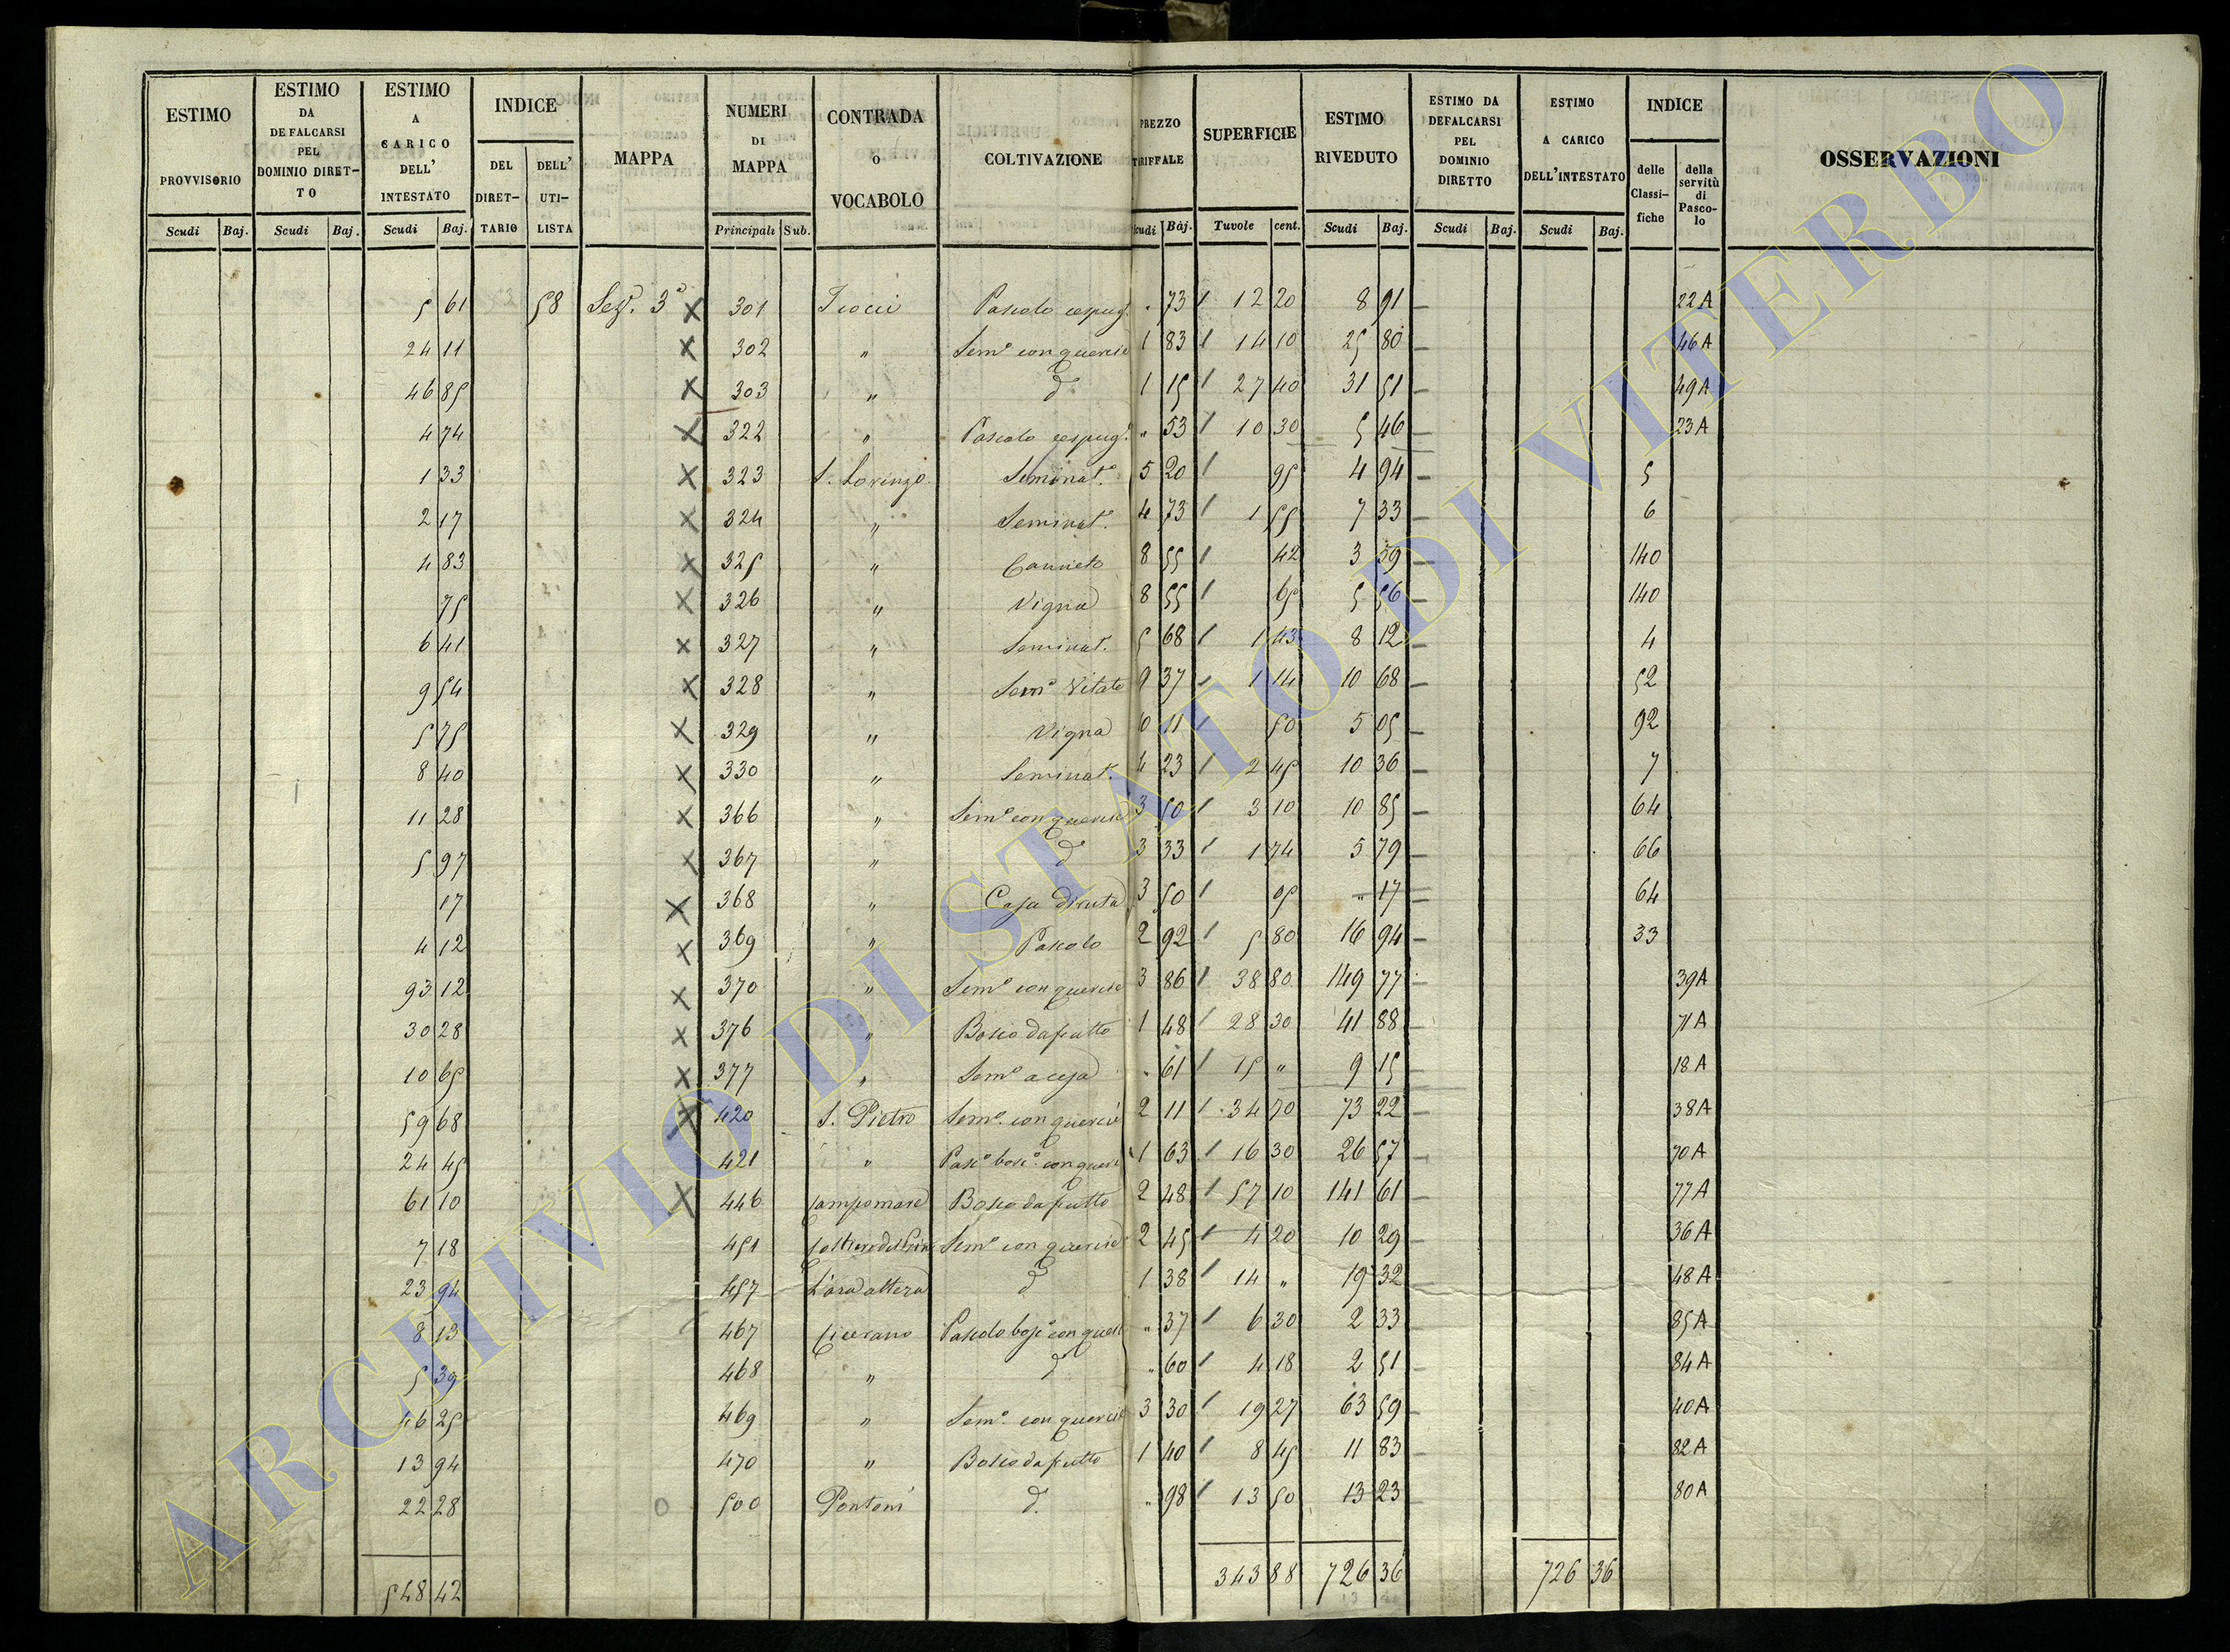 ESTIMO PROVVISORIO Scudi Baj. | ESTIMO DA DEFALCARSI PEL DOMINIO DIRET-TO Scudi Baj. | ESTIMO A CARICO DELL' INTESTATO Scudi Baj. | INDICE DEL DIRET-TARIO DELL' UTI-LISTA | MAPPA | NUMERI DI MAPPA Principali Sub. | CONTRADA O VOCABOLO | COLTIVAZIONE | PREZZO TARIFFALE Scudi Baj. | SUPERFICIE Tavole cent. | ESTIMO RIVEDUTO Scudi Baj. | ESTIMO DA DEFALCARSI PEL DOMINIO DIRETTO Scudi Baj. | ESTIMO A CARICO DELL'INTESTATO Scudi Baj. | INDICE delle Classi-fiche della servitù di Pasco-lo | OSSERVAZIONI
5 61 58 Sez. 3ª X 301 Pascolo cespug. " 73 12 20 8 91 22A
24 11 X 302 " Semº con quercie 1 83 14 10 25 80 46A
46 85 X 303 " dº 1 15 27 40 31 51 49A
4 74 X 322 " Pascolo cespug. " 53 10 30 5 46 23A
1 33 X 323 S. Lorenzo Seminatº 5 20 95 4 94 5
2 17 X 324 " Seminatº 4 73 1 55 7 33 6
4 83 X 325 " Canneto 8 55 42 3 59 140
75 X 326 " Vigna 8 55 65 5 56 140
6 41 X 327 " Seminat. 5 68 1 43 8 12 4
9 54 X 328 " Semº Vitato 9 37 1 14 10 68 52
5 75 X 329 " Vigna 11 50 5 05 92
8 40 X 330 " Seminatº 4 23 2 45 10 36 7
11 28 X 366 " Semº con quercie 3 50 3 10 10 85 64
5 97 X 367 " dº 3 33 1 74 5 79 66
17 X 368 " Casa diruta 3 50 05 " 17 64
4 12 X 369 " Pascolo 2 92 5 80 16 94 33
93 12 X 370 " Semº con quercie 3 86 38 80 149 77 39A
30 28 X 376 " Bosco da frutto 1 48 28 30 41 88 71A
10 65 X 377 " Semº a cesa " 61 15 " 9 15 18A
59 68 X 420 S. Pietro Semº con quercie 2 11 34 70 73 22 38A
24 45 421 " Pascº boscº con querc 1 63 16 30 26 57 70A
61 10 X 446 Campomare Bosco da frutto 2 48 57 10 141 61 77A
7 18 451 Semº con quercie 2 45 4 20 10 29 36A
23 94 457 dº 1 38 14 " 19 32 48A
8 13 467 Cicerano Pascolo boscº con querc " 37 6 30 2 33 85A
5 39 468 " dº " 60 4 18 2 51 84A
46 25 469 " Semº con quercie 3 30 19 27 63 59 40A
13 94 470 " Bosco da frutto 1 40 8 45 11 83 82A
22 28 0 500 Pontoni dº " 98 13 50 13 23 80A
548 42 343 88 726 36 726 36
ARCHIVIO DI STATO DI VITERBO